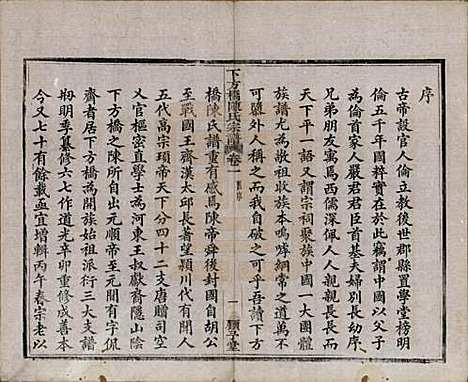 序
古帝設官人倫立教後世郡縣置學堂榜明
倫五千年國粹實在於此竊謂中國以父子
倫為首家人嚴君君臣首基夫婦別長幼序
兄弟朋友寓焉西儒深佩人人親親長長
天下平一語又謂宗祠聚族中國一大團體
族譜尤為敬祖收族本嗚呼綱常之道萬不
可墜外人稱之而我自棄之可乎吾讀下方
下方橋陳氏宗譜 卷一 舊序 一 穎予堂
橋陳氏譜重有感焉陳帝舜後封國自胡公
至戰國王齊漢太邱長著望潁川代有聞人
五代萬宗瑣帝天下分四十二支唐贈司空
又官樞密直學士為河東王叔獻齋隱山陰
下方橋之陳所自出元順帝至元間有字侃
齋者居下方橋為開族始祖派衍三大支譜
剙明季纂修六七作道光辛卯重修成善本
今又七十有餘載亟宜增輯丙午春宗老以